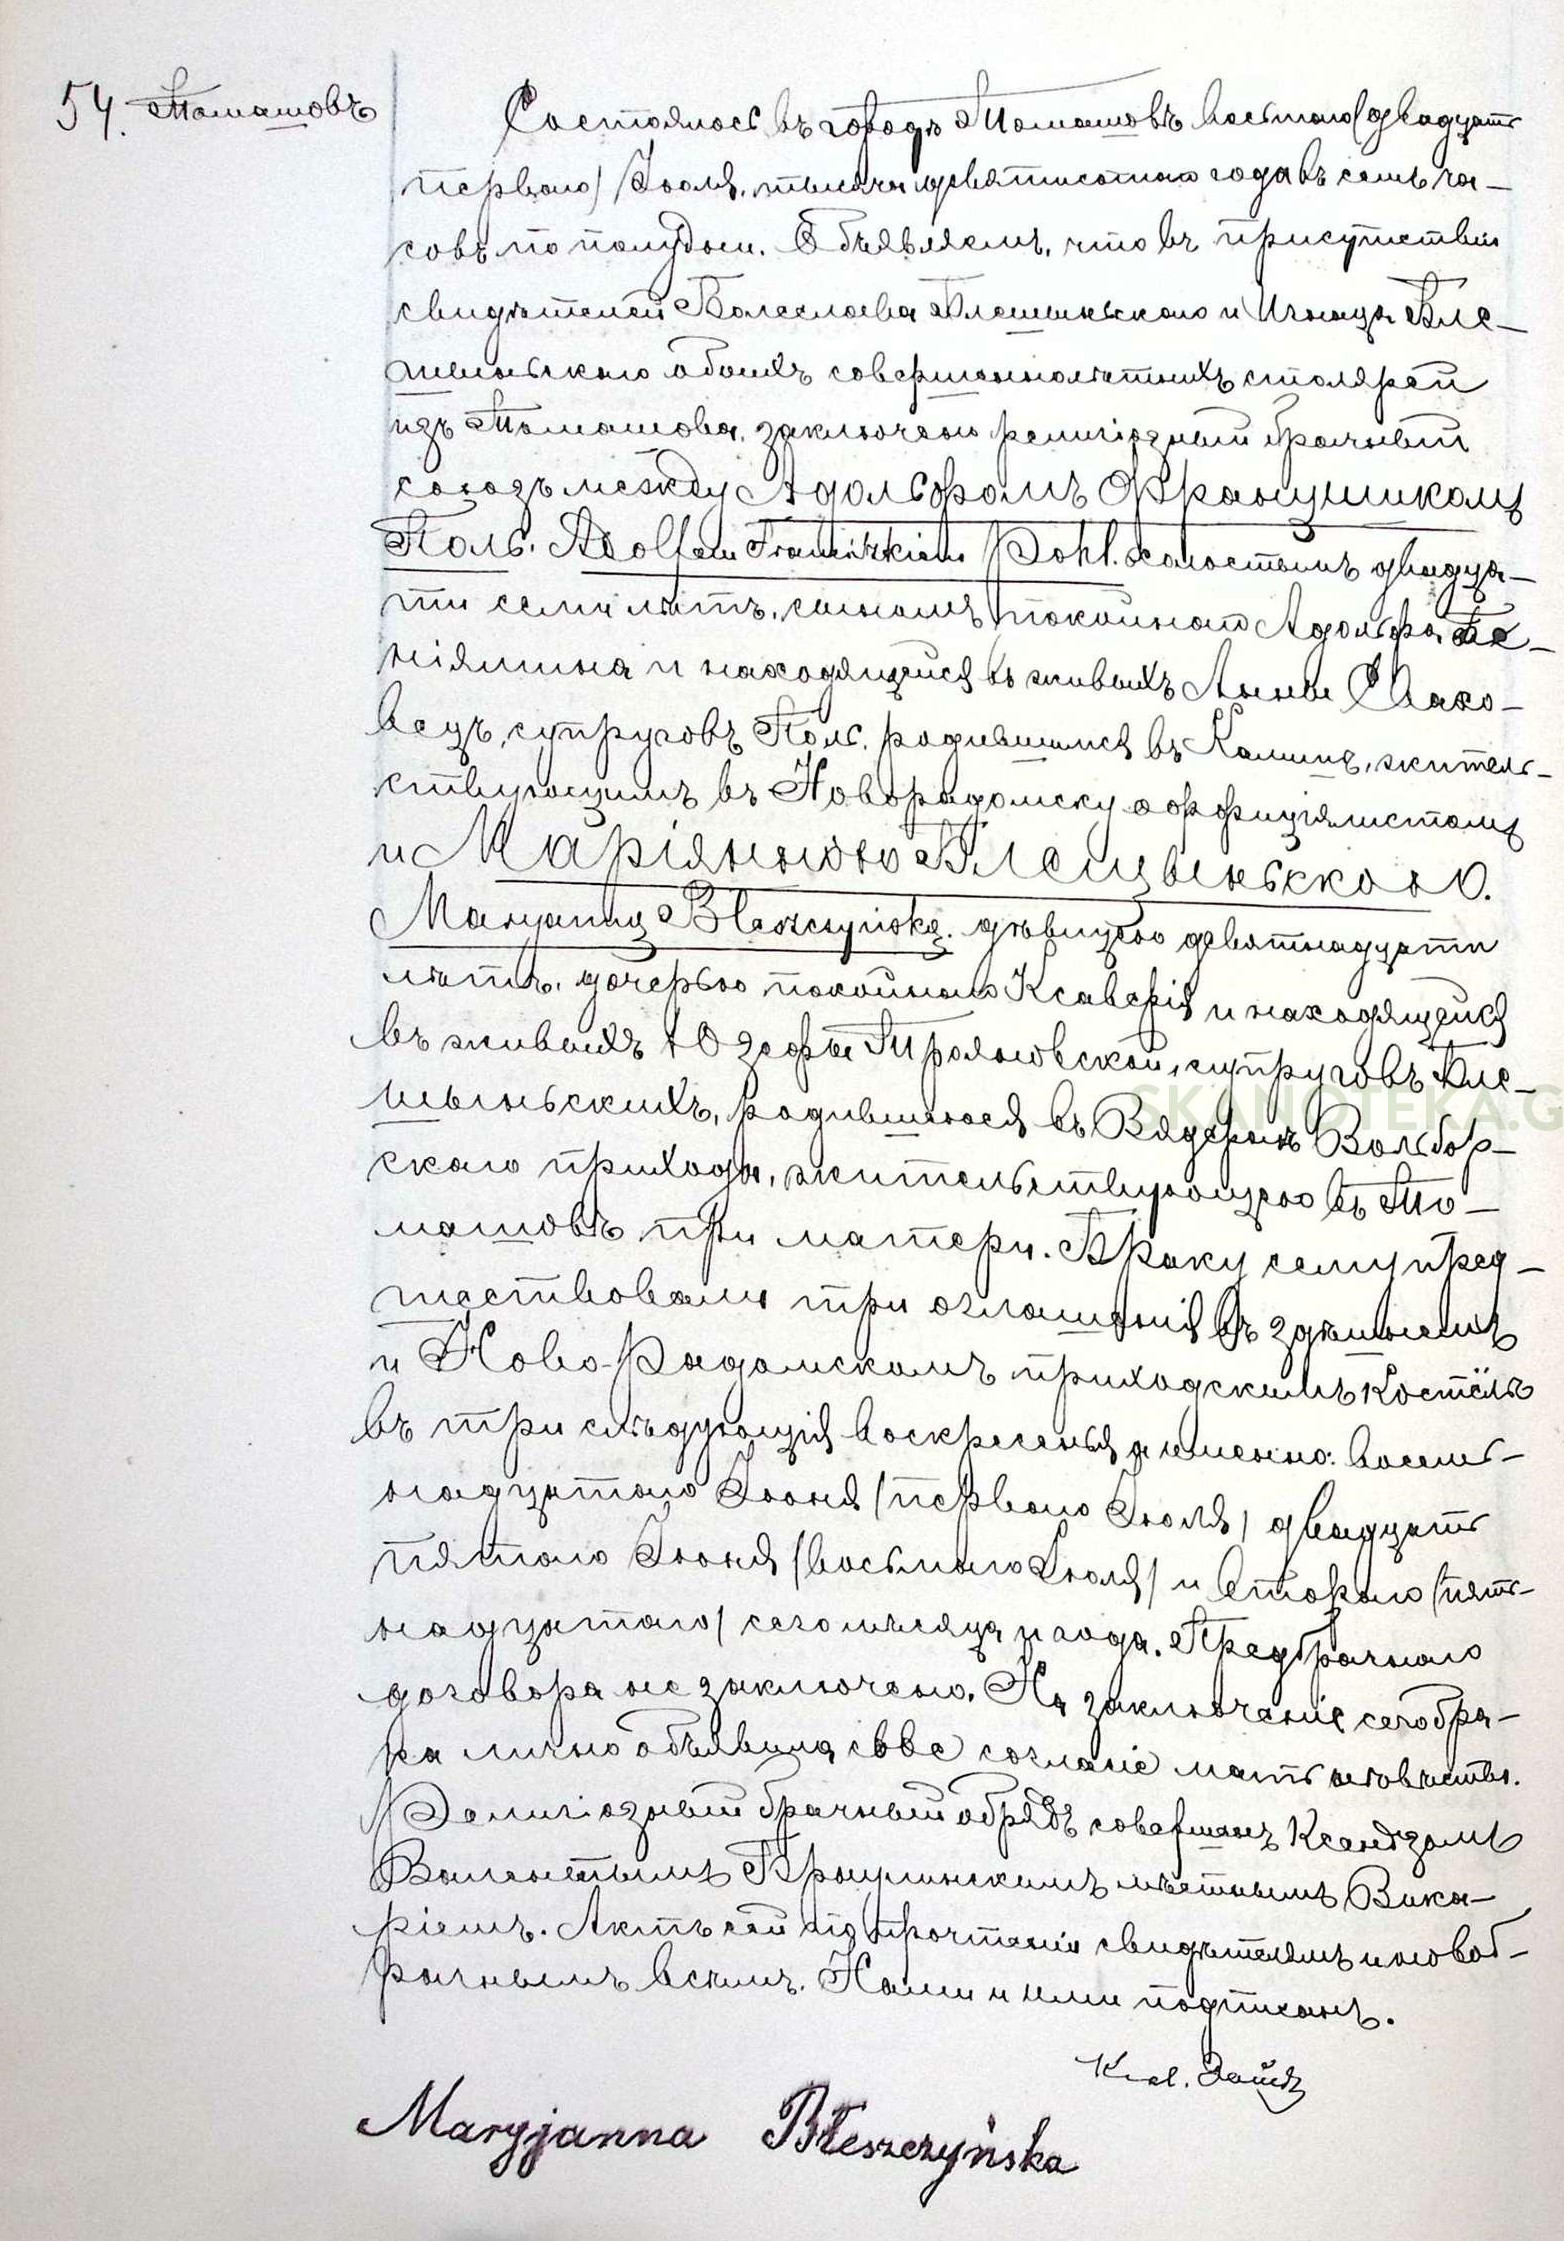 54. Томашовъ
Состоялось въ городѣ Томашовѣ восьмого (двадцать
перваго) Іюля, тысяча девятисотаго года въ семь ча-
совъ по полудни. Объявляемъ, что въ присутствіи
свидѣтелей Болеслава Блешиньскаго и Игнаца Бле-
шиньскаго обоихъ совершеннолѣтнихъ столярей
изъ Томашова, заключенъ религіозный брачный
союзъ между Адольфомъ Францишкомъ
Поль. Adolfem Franciszkiem Pohl. холостымъ двадца-
ти семи лѣтъ, сыномъ покойнаго Адольфа Бе-
ніямина и находящейся въ живыхъ Анны
супруговъ Поль, родившимся въ Калишѣ, житель-
ствующимъ въ Новорадомску оффиціялистомъ
и Маріянною Блещиньскою.
Maryanną Błeszczyńską. дѣвицею девятнадцати
лѣтъ, дочерью покойнаго Ксаверія и находящейся
въ живыхъ Юзефы Трояновской, супруговъ Бле-
шыньскихъ, родившеюся въ Вядернѣ Вольбор-
скаго прихода, жительствующею въ То-
машовѣ при матери. Браку сему пред-
шествовали три оглашенія въ здѣшнемъ
и Ново-Радомскомъ приходскимъ костёлѣ
въ три слѣдующія воскресенья а именно: восем-
надцатаго Іюня (перваго Іюля) двадцать
пятаго Іюня (восьмаго Іюля) и втораго (пят-
надцатаго) сего мѣсяца и года. Предбрачнаго
договора не заключено. На заключеніе сего бра-
ка лично объявила свое согласіе мать невѣсты.
Религіозный брачный обрядъ совершенъ Ксендзомъ
Валентымъ мѣстнымъ Вика-
ріемъ. Актъ сей по прочтеніи свидѣтелямъ и новоб-
рачнымъ всѣмъ. Нами и ими подписанъ.
Maryjanna Błeszczyńska
SKANOTEKA.G